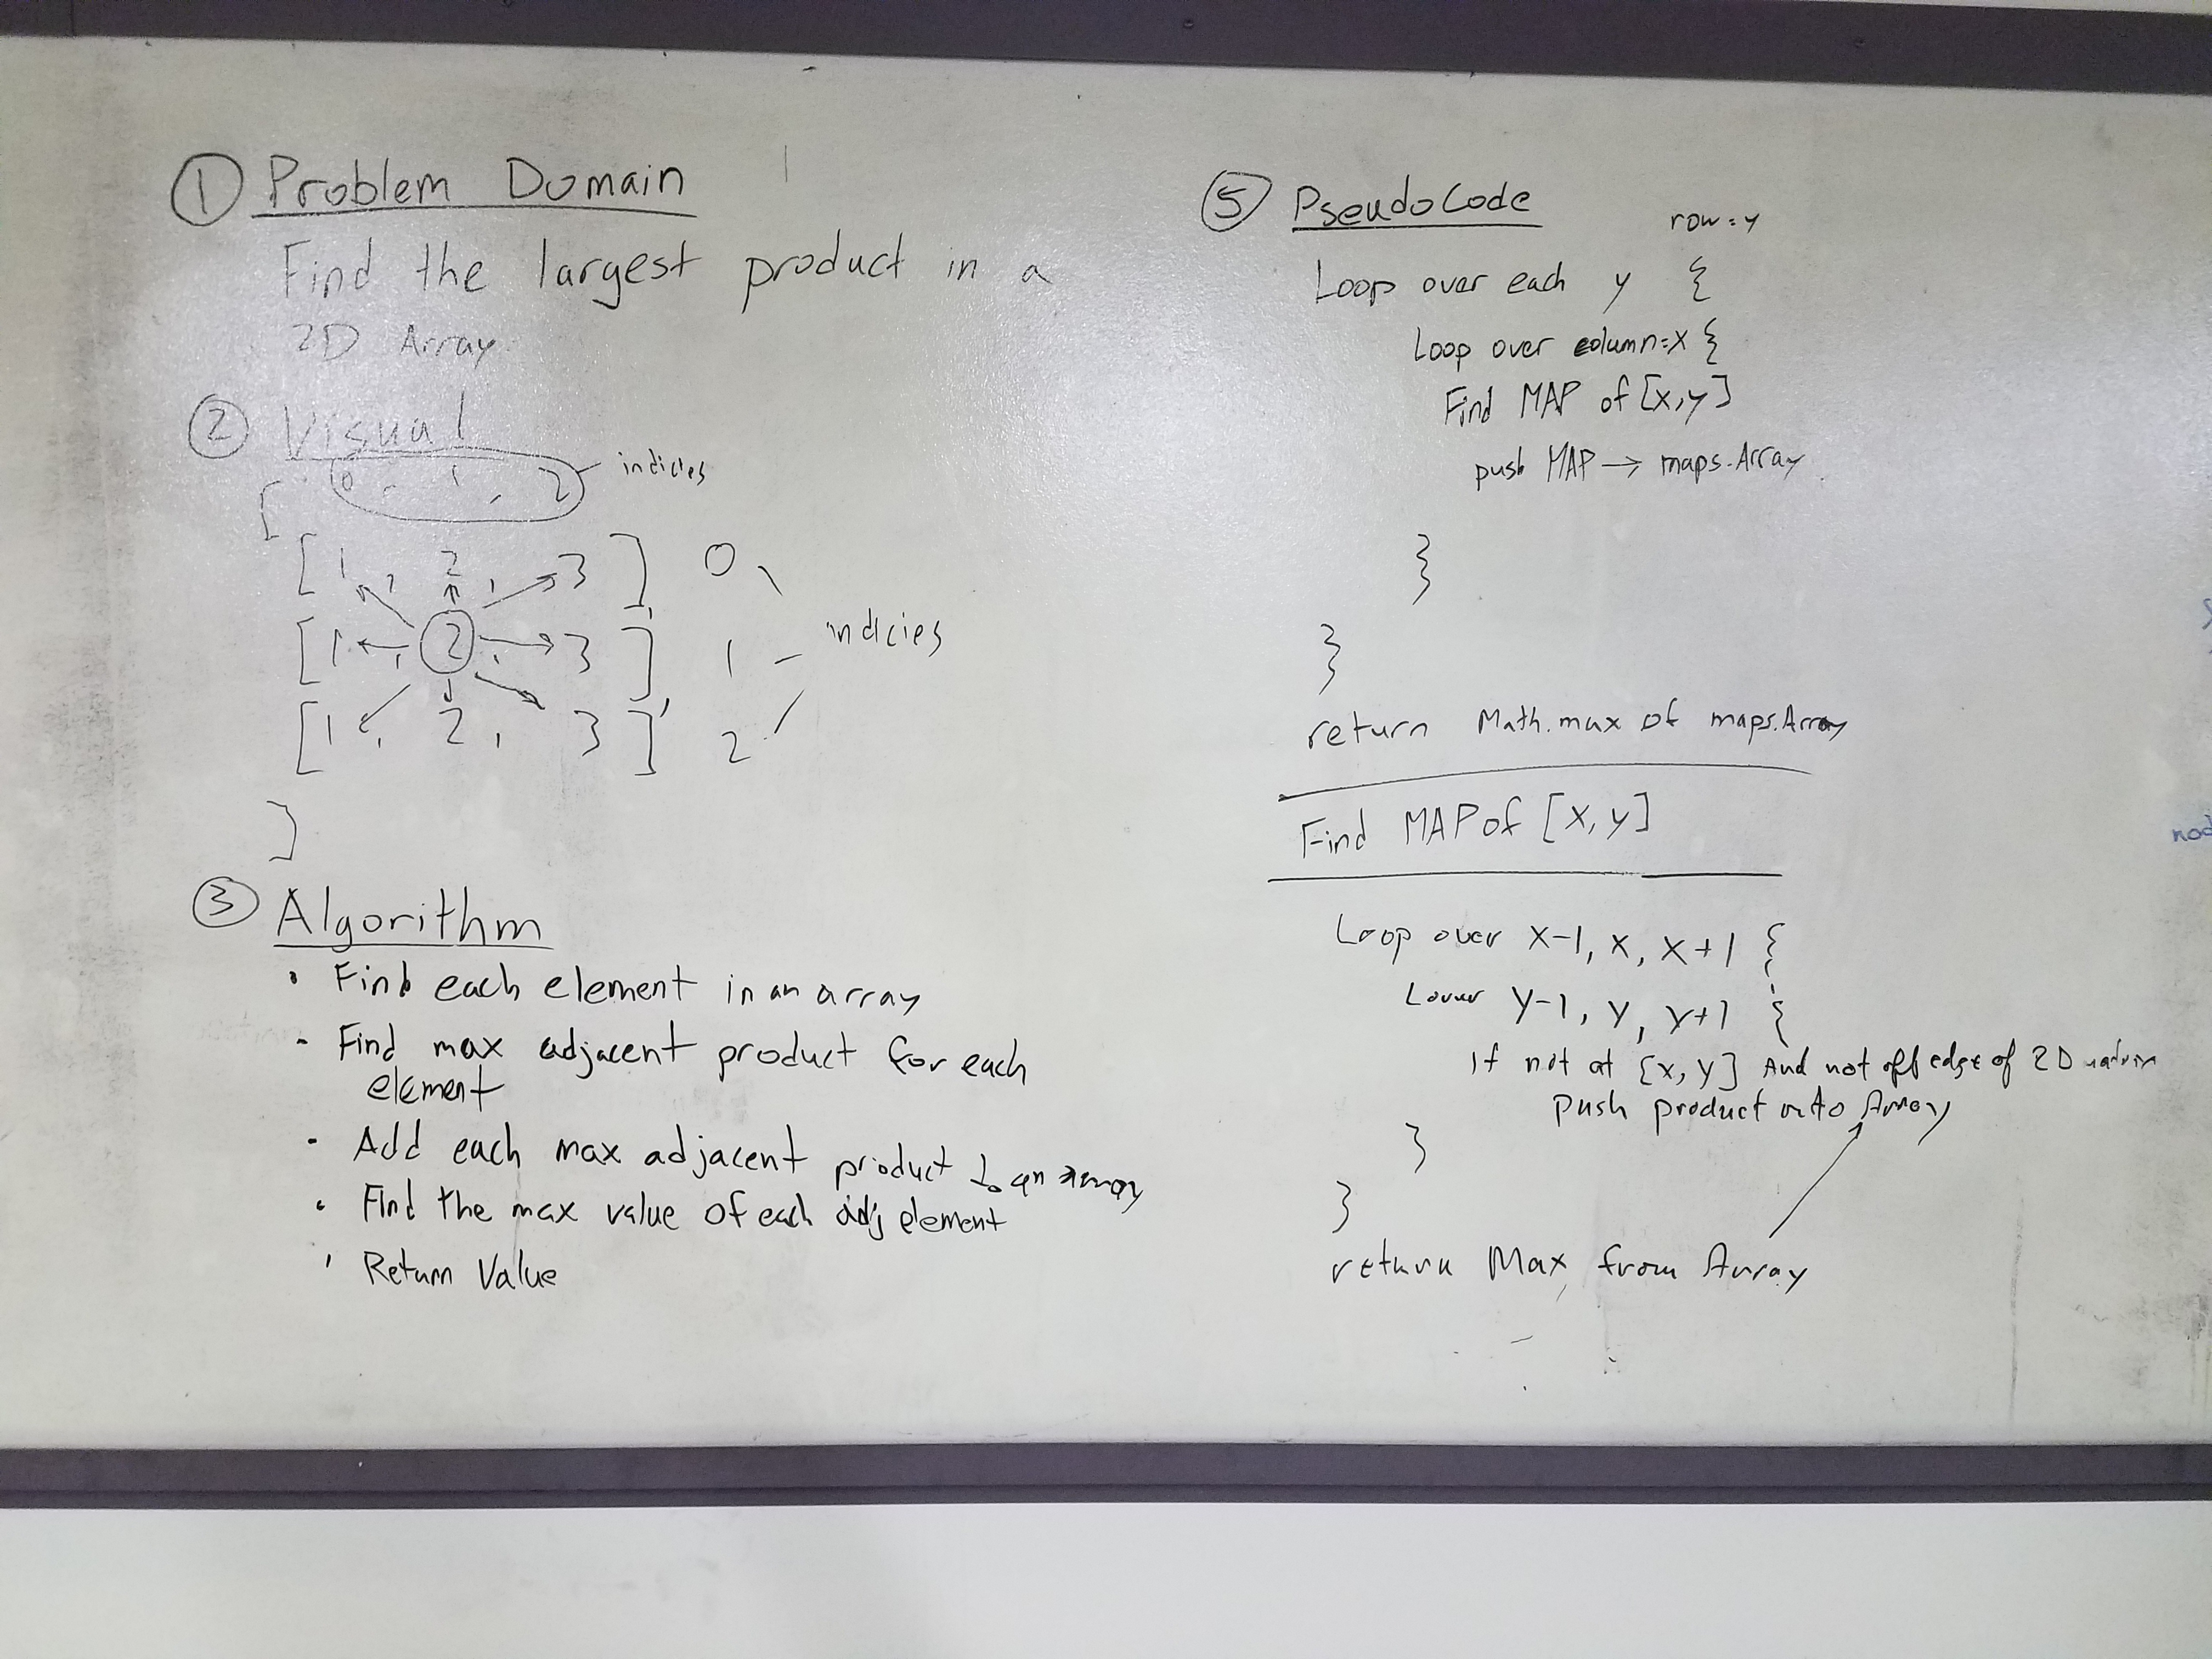 ① Problem Domain
Find the largest product in a
2D Array
② Visual
0, 1, 2 indicies
[
[1, 2, 3], 0
[1, 2, 3], 1 indicies
[1, 2, 3] 2
]
③ Algorithm
• Find each element in an array
- Find max adjacent product for each
element
- Add each max adjacent product to an array
• Find the max value of each adj element
' Return Value
⑤ PseudoCode
row = y
Loop over each y {
Loop over column = x {
Find MAP of [x,y]
push MAP → maps.Array
}
}
return Math.max of maps.Array
Find MAP of [x, y]
Loop over x-1, x, x+1 {
y-1, y, y+1 {
If not at [x, y] And not off edge of 2D
Push product onto Array
}
}
return Max from Array
nod